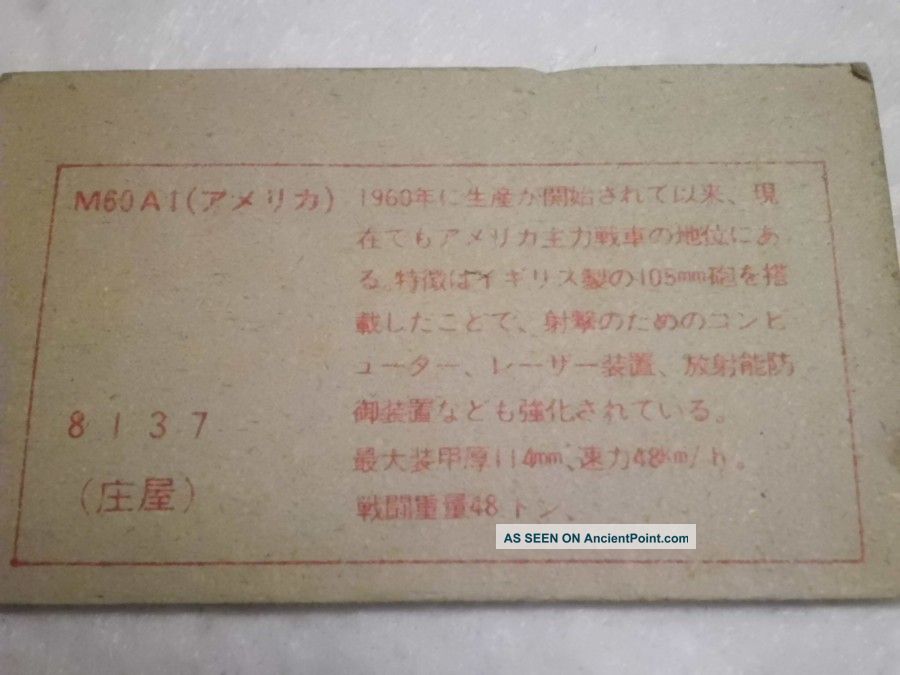 M60A1(アメリカ)
1960年に生産が開始されて以来、現
在でもアメリカ主力戦車の地位にあ
る。特徴はイギリス製の105mm砲を搭
載したことで、射撃のためのコンピ
ューター、レーザー装置、放射能防
御装置なども強化されている。
最大装甲厚114mm、速力48km/h。
戦闘重量48トン、
8137
(庄屋)
AS SEEN ON AncientPoint.com